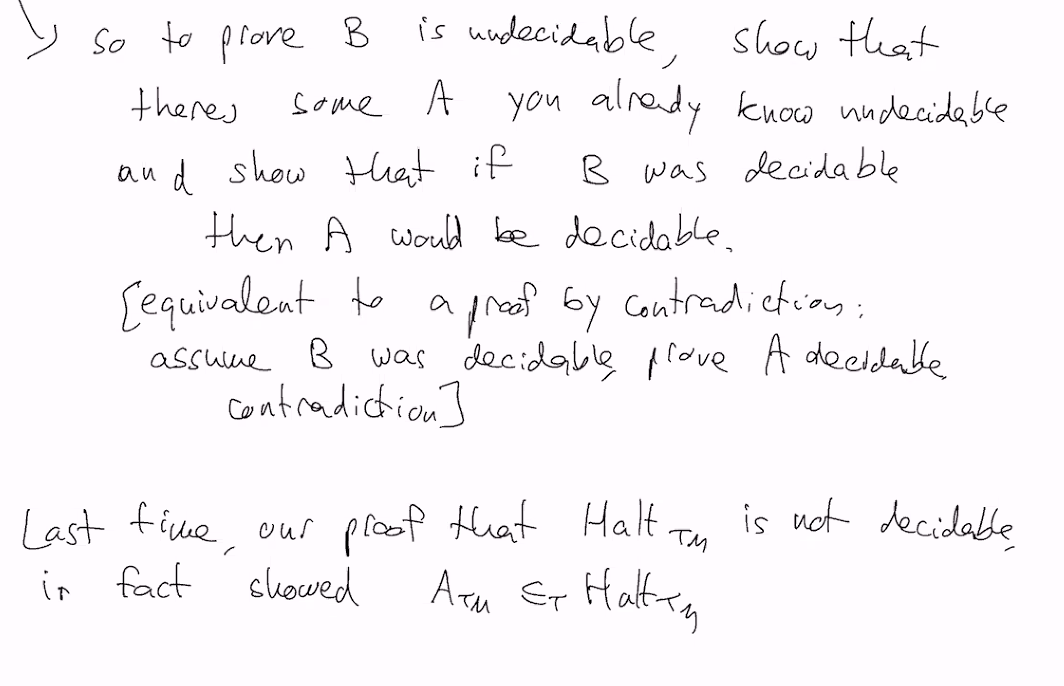 ↳ so to prove B is undecidable, show that
theres some A you already know undecidable
and show that if B was decidable
then A would be decidable.
[equivalent to a proof by contradiction:
assume B was decidable, prove A decidable,
contradiction]
Last time, our proof that Halt_TM is not decidable,
in fact showed A_TM ≤_T Halt_TM